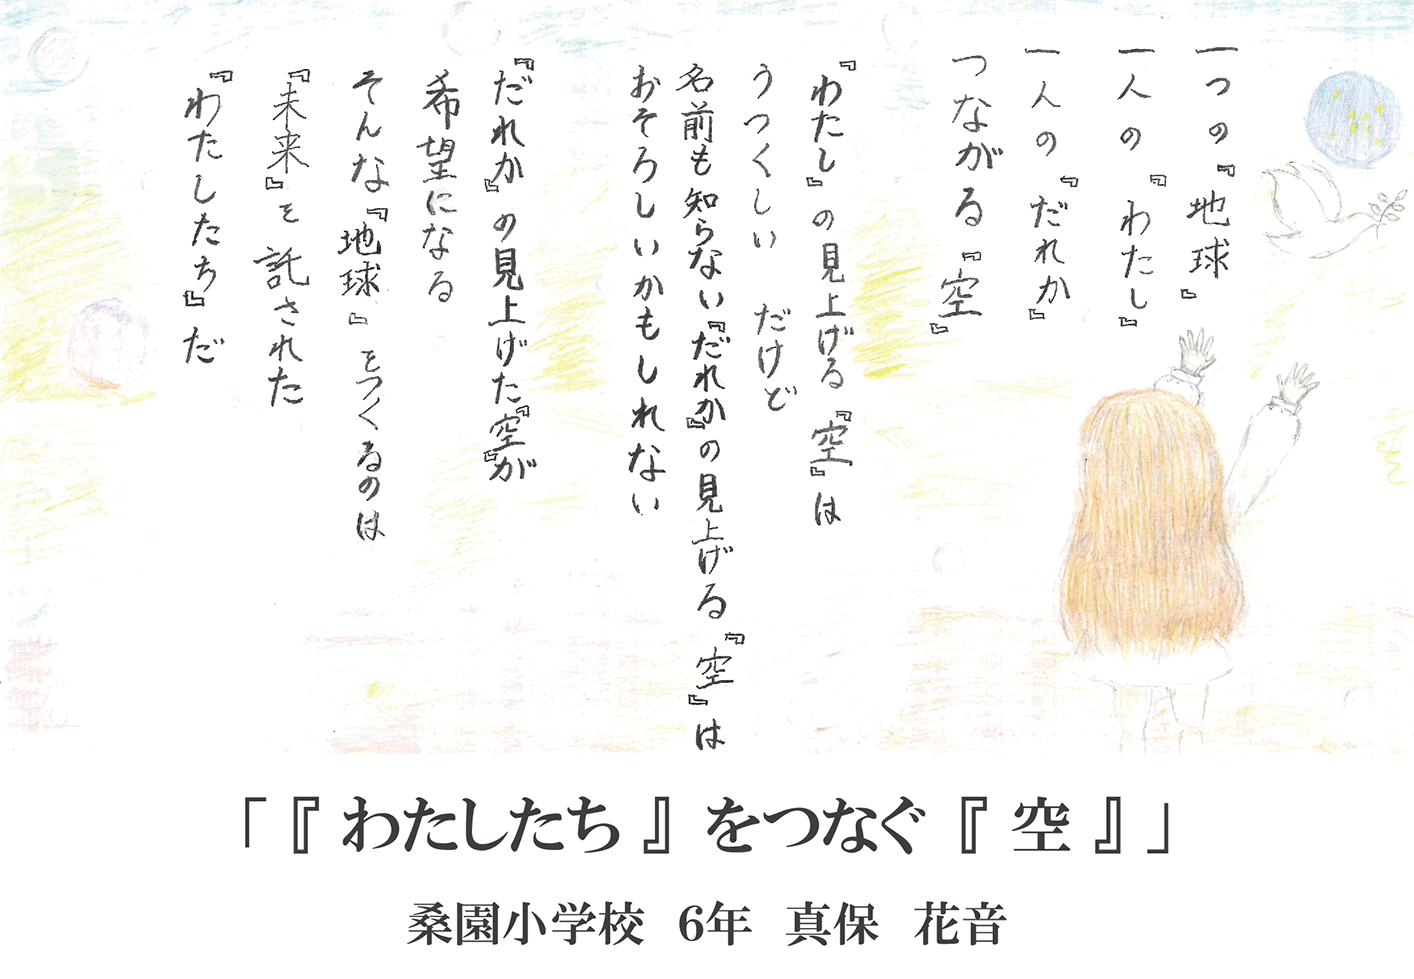 一つの『地球』
一人の『わたし』
一人の『だれか』
つながる『空』
『わたし』の見上げる『空』は
うつくしい　だけど
名前も知らない『だれか』の見上げる『空』は
おそろしいかもしれない
『だれか』の見上げた『空』が
希望になる
そんな『地球』をつくるのは
『未来』を託された
『わたしたち』だ
「『わたしたち』をつなぐ『空』」
桑園小学校　6年　真保　花音